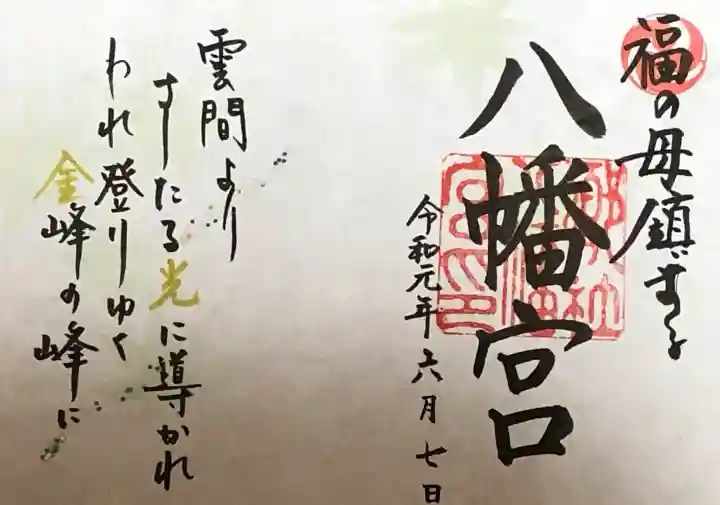 福の母鎮ずる
八幡宮
令和元年六月七日
雲間より
すしたる光に導かれ
われ登りゆく
金峰の峰に